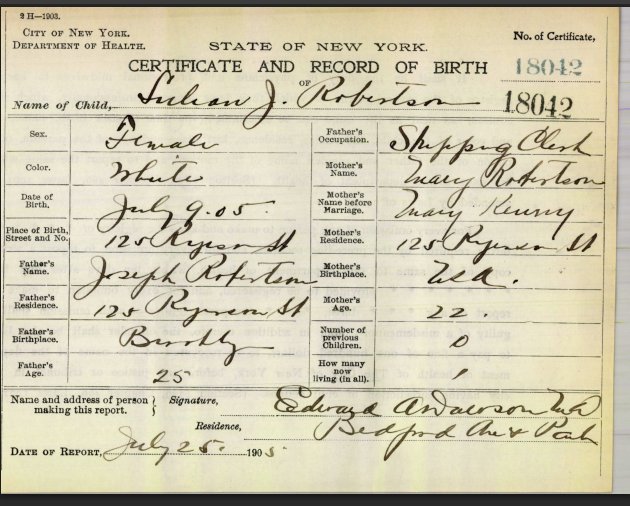 2 H—1903.
CITY OF NEW YORK.
DEPARTMENT OF HEALTH.
STATE OF NEW YORK.
No. of Certificate,
CERTIFICATE AND RECORD OF BIRTH
18042
OF
Name of Child, Lilian J. Robertson
18042
Sex. Female
Father's Occupation. Shipping Clerk
Color. White
Mother's Name. Mary Robertson
Date of Birth. July 9. 05.
Mother's Name before Marriage. Mary Kenny
Place of Birth, Street and No. 125 Ryerson St
Mother's Residence. 125 Ryerson St
Father's Name. Joseph Robertson
Mother's Birthplace. U S A.
Father's Residence. 125 Ryerson St
Mother's Age. 22.
Father's Birthplace. Brooklyn
Number of previous Children. 0
Father's Age. 25
How many now living (in all). 1
Name and address of person making this report.
Signature, Edward A
Residence, Bedford Ave & Park
DATE OF REPORT, July 25. 1905.